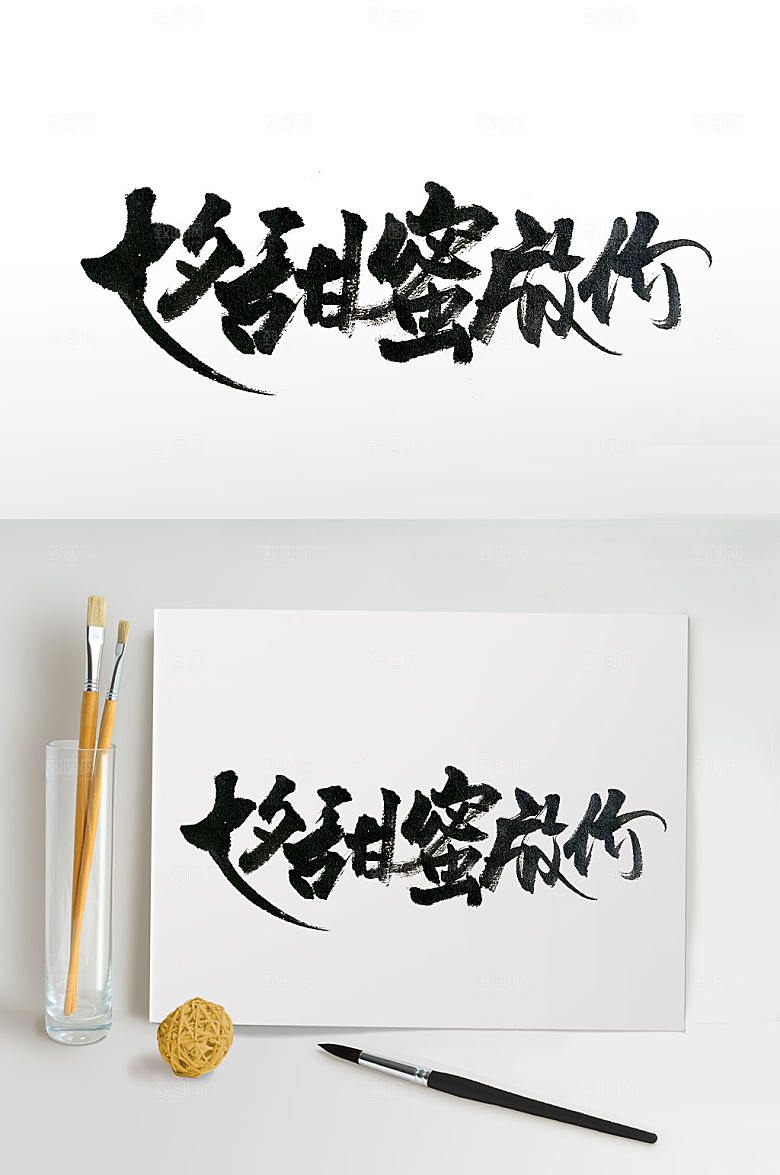 七夕甜蜜放价
七夕甜蜜放价